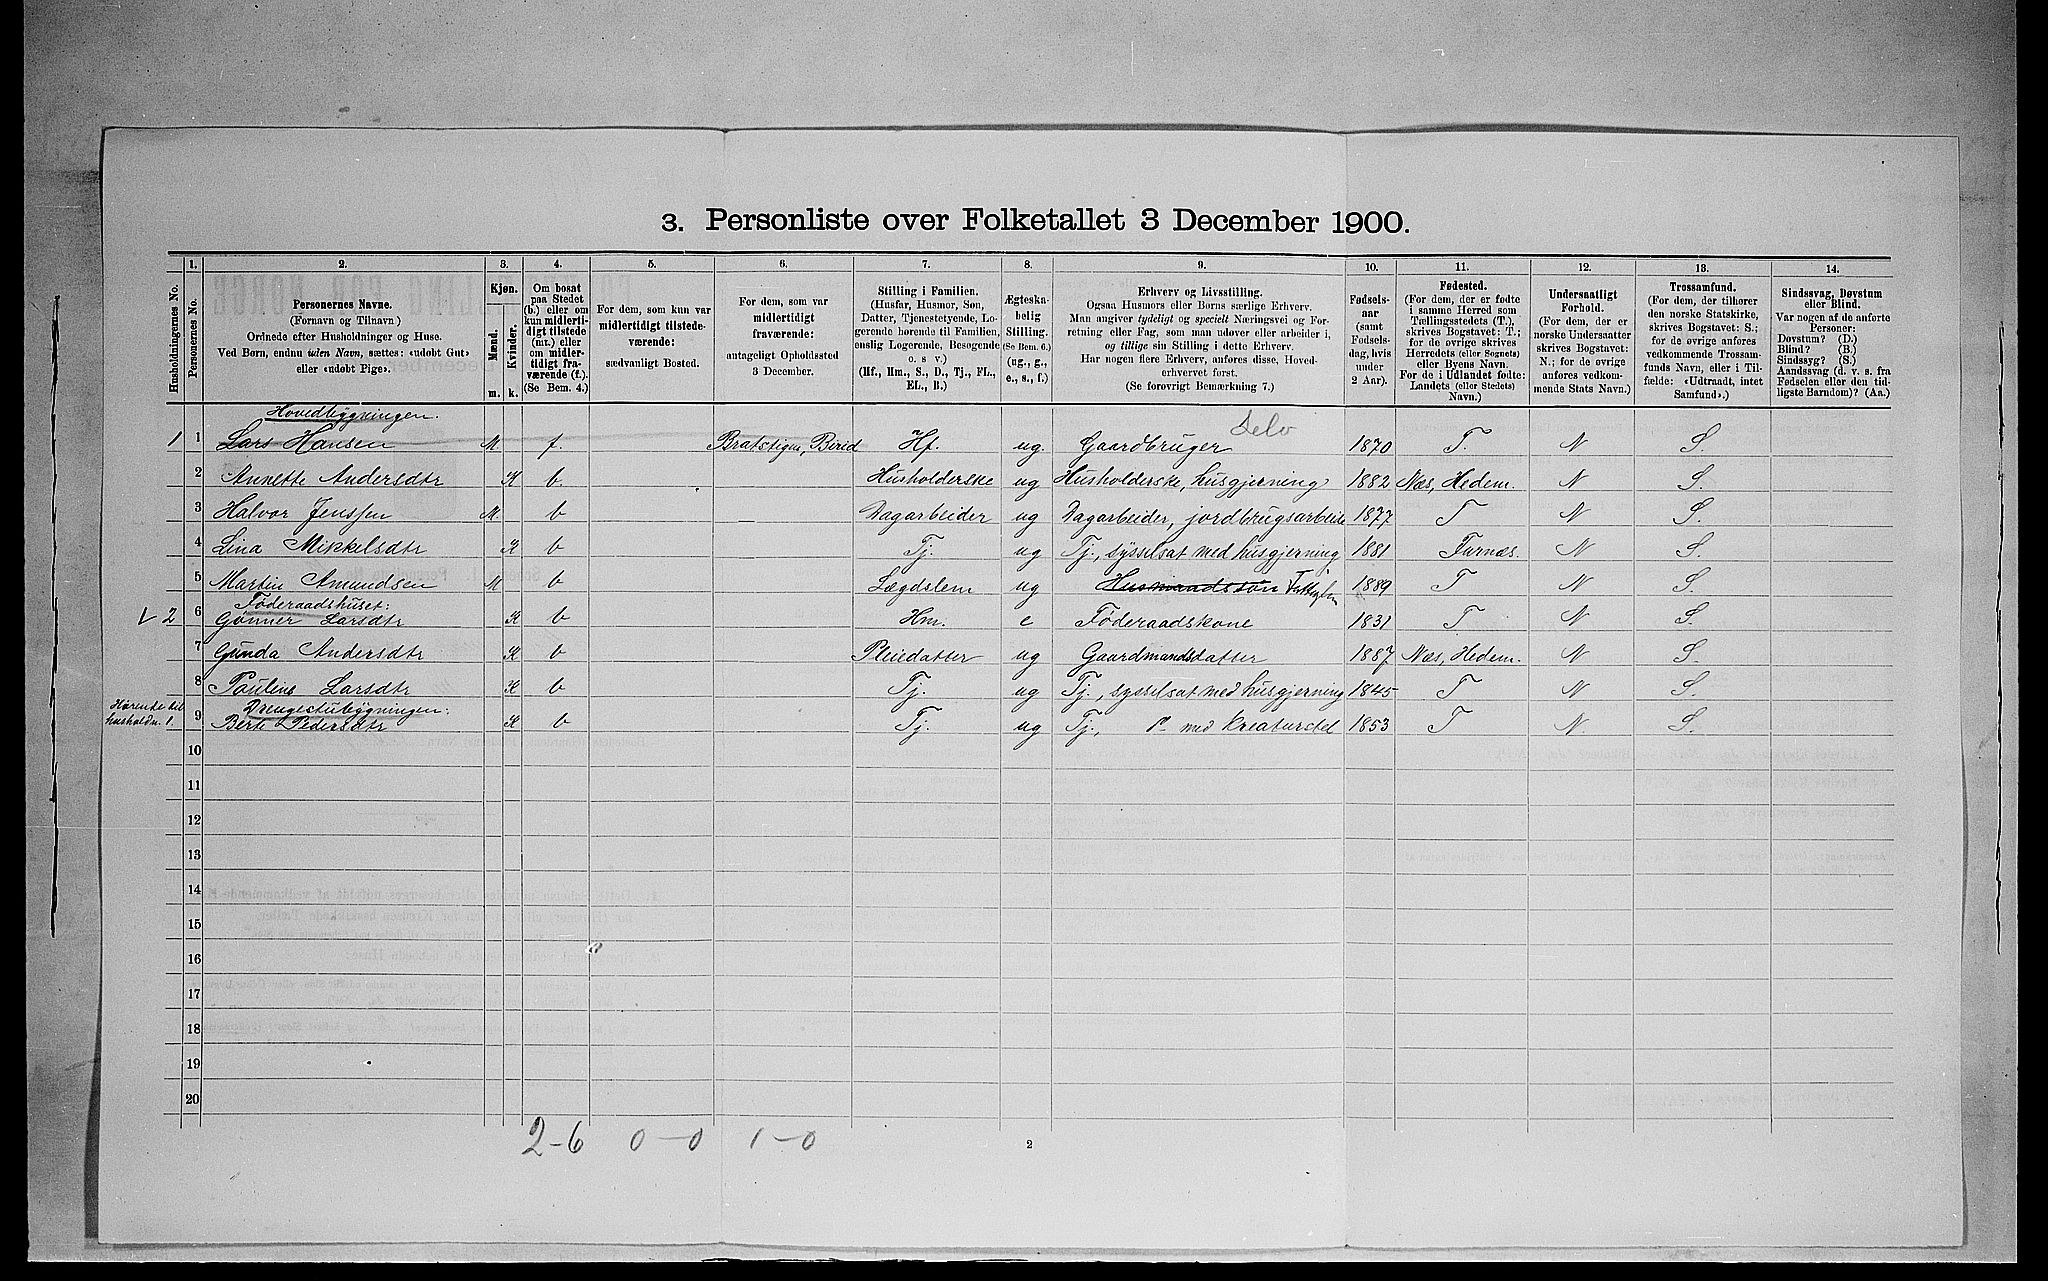 3. Personliste over Folketallet 3 December 1900.
Husholdningernes No.
1.
Personernes No.
2.
Personernes Navne.
(Fornavn og Tilnavn)
Ordnede efter Husholdninger og Huse.
Ved Børn, endnu uden Navn, sættes: «udøbt Gut»
eller «udøbt Pige».
3.
Kjøn.
Mænd.
Kvinder.
m. k.
4.
Om bosat
paa Stedet
(b.) eller om
kun midlerti-
digt tilstede
(mt.) eller
om midler-
tidigt fra-
værende (f.)
(Se Bem. 4.)
5.
For dem, som kun var
midlertidigt tilstede-
værende:
sædvanligt Bosted.
6.
For dem, som var
midlertidigt
fraværende:
antageligt Opholdssted
3 December.
7.
Stilling i Familien.
(Husfar, Husmor, Søn,
Datter, Tjenestetyende, Lo-
gerende hørende til Familien,
enslig Logerende, Besøgende
o. s. v.)
(Hf., Hm., S., D., Tj., FL.,
EL., B.)
8.
Ægteska-
belig
Stilling.
(Se Bem. 6.)
(ug., g.,
e., s., f.)
9.
Erhverv og Livsstilling.
Ogsaa Husmors eller Børns særlige Erhverv.
Man angiver tydeligt og specielt Næringsvei og For-
retning eller Fag, som man udøver eller arbeider i,
og tillige sin Stilling i dette Erhverv.
Har nogen flere Erhverv, anføres disse, Hoved-
erhvervet først.
(Se forøvrigt Bemærkning 7.)
10.
Fødsels-
aar
(samt
Fødsels-
dag, hvis
under
2 Aar).
11.
Fødested.
(For dem, der er fødte
i samme Herred som
Tællingsstedets (T.),
skrives Bogstavet: T.;
for de øvrige skrives
Herredets (eller Sognets)
eller Byens Navn.
For de i Udlandet fødte:
Landets (eller Stedets)
Navn.)
12.
Undersaatligt
Forhold.
(For dem, der er
norske Undersaatter
skrives Bogstavet:
N.; for de øvrige
anføres vedkom-
mende Stats Navn.)
13.
Trossamfund.
(For dem, der tilhører
den norske Statskirke,
skrives Bogstavet: S.;
for de øvrige anføres
vedkommende Trossam-
funds Navn, eller i Til-
fælde: «Udtraadt, intet
Samfund».)
14.
Sindssvag, Døvstum
eller Blind.
Var nogen af de anførte
Personer:
Døvstum? (D.)
Blind? (B.)
Sindssyg? (S.)
Aandssvag (d. v. s. fra
Fødselen eller den tid-
ligste Barndom)? (Aa.)
Hovedbygningen.
1 1 Lars Hansen M. f. Bratstigen, Birid Hf. ug. Gaardbruger Selv 1870 T. N S.
2 Annette Andersdtr K b. Husholderske ug Husholderske, husgjerning 1882 Næs, Hedem. N S.
3 Halvor Jenssen M. b Dagarbeider ug Dagarbeider, jordbrugsarbeide 1877 T N S.
4 Lina Mikkelsdtr K b Tj. ug Tj., sysselsat med husgjerning 1881 Furnæs. N S.
5 Martin Amundsen M b Lægdslem ug Husmandssøn Fattiglem 1889 T N S.
Føderaadshuset:
2 6 Gønner Larsdtr K b Hm. e Føderaadskone 1831 T N S.
7 Gunda Andersdtr K b Pleiedatter ug Gaardmandsdatter 1887 Næs, Hedem. N S.
8 Pauline Larsdtr K b Tj. ug Tj., sysselsat med husgjerning 1845 T N S.
Drengestubygningen:
Hørende til
husholdn. 1. 9 Berte Pedersdtr K b Tj. ug Tj., med kreaturstel 1853 T N. S.
10
11
12
13
14
15
16
17
18
19
20
2-6 0-0 1-0
2